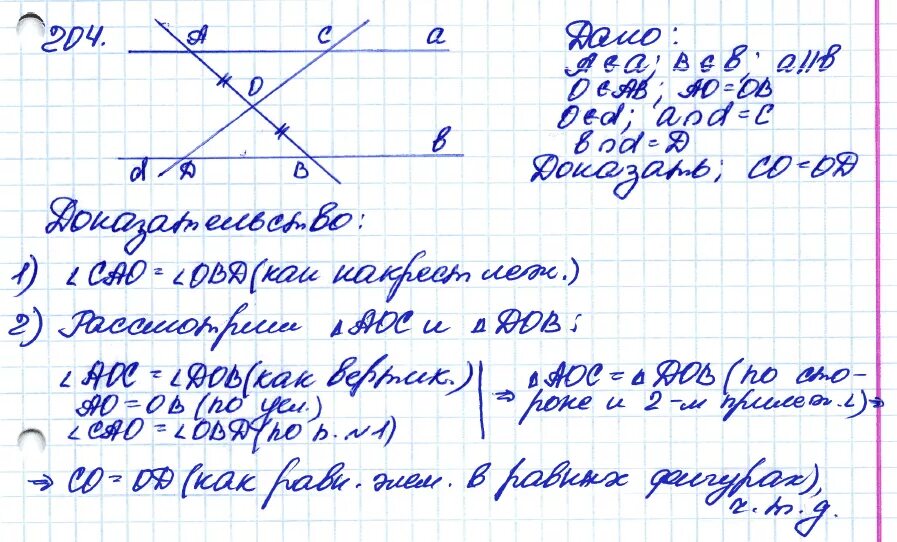 204.
A C a
O
d D B в
Дано:
A ∈ a; B ∈ в; a || в
O ∈ AB; AO = OB
O ∈ d; a ∩ d = C
в ∩ d = D
Доказать; CO = OD
Доказательство:
1) ∠CAO = ∠OBD (как накрест леж.)
2) Рассмотрим △AOC и △DOB:
∠AOC = ∠DOB (как вертик.)
AO = OB (по усл.)
∠CAO = ∠OBD (по п. №1)
⇒ △AOC = △DOB (по сто-
роне и 2-м прилеж. ∠) ⇒
⇒ CO = OD (как равн. элем. в равных фигурах),
ч.т.д.